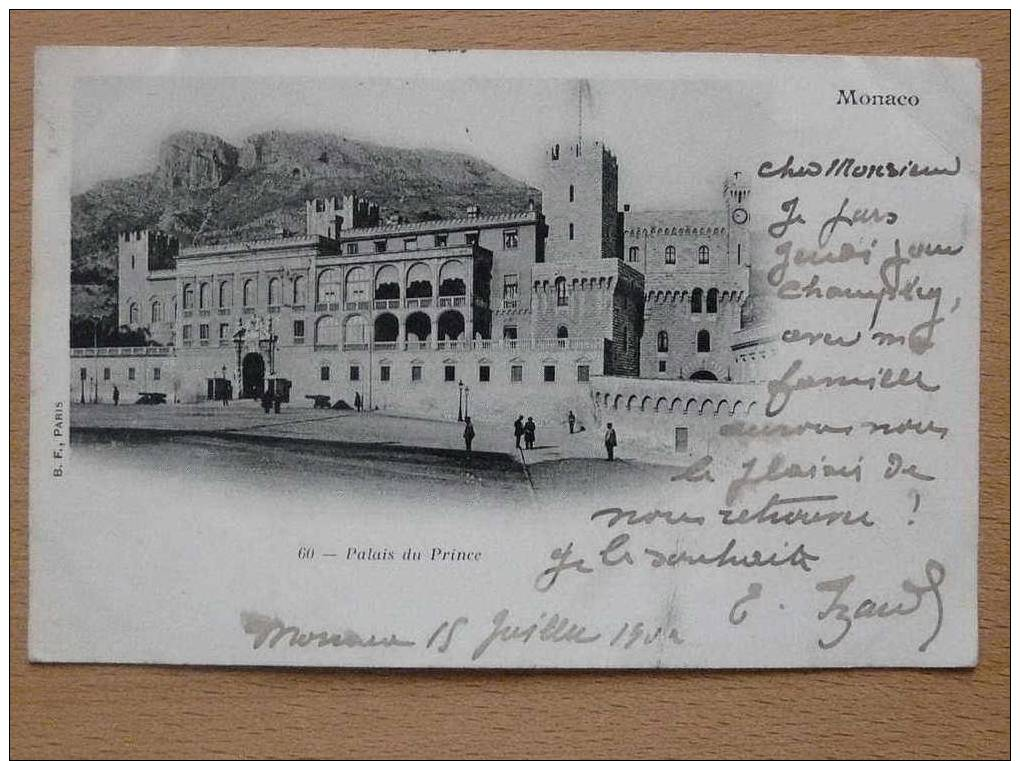 Monaco
cher Monsieur
Je pars
Jeudi pour
Champéry,
avec ma
famille
aurons nous
le plaisir de
nous retrouver !
Je le souhaite
E.
Monaco 15 Juillet
60 — Palais du Prince
B. F., PARIS